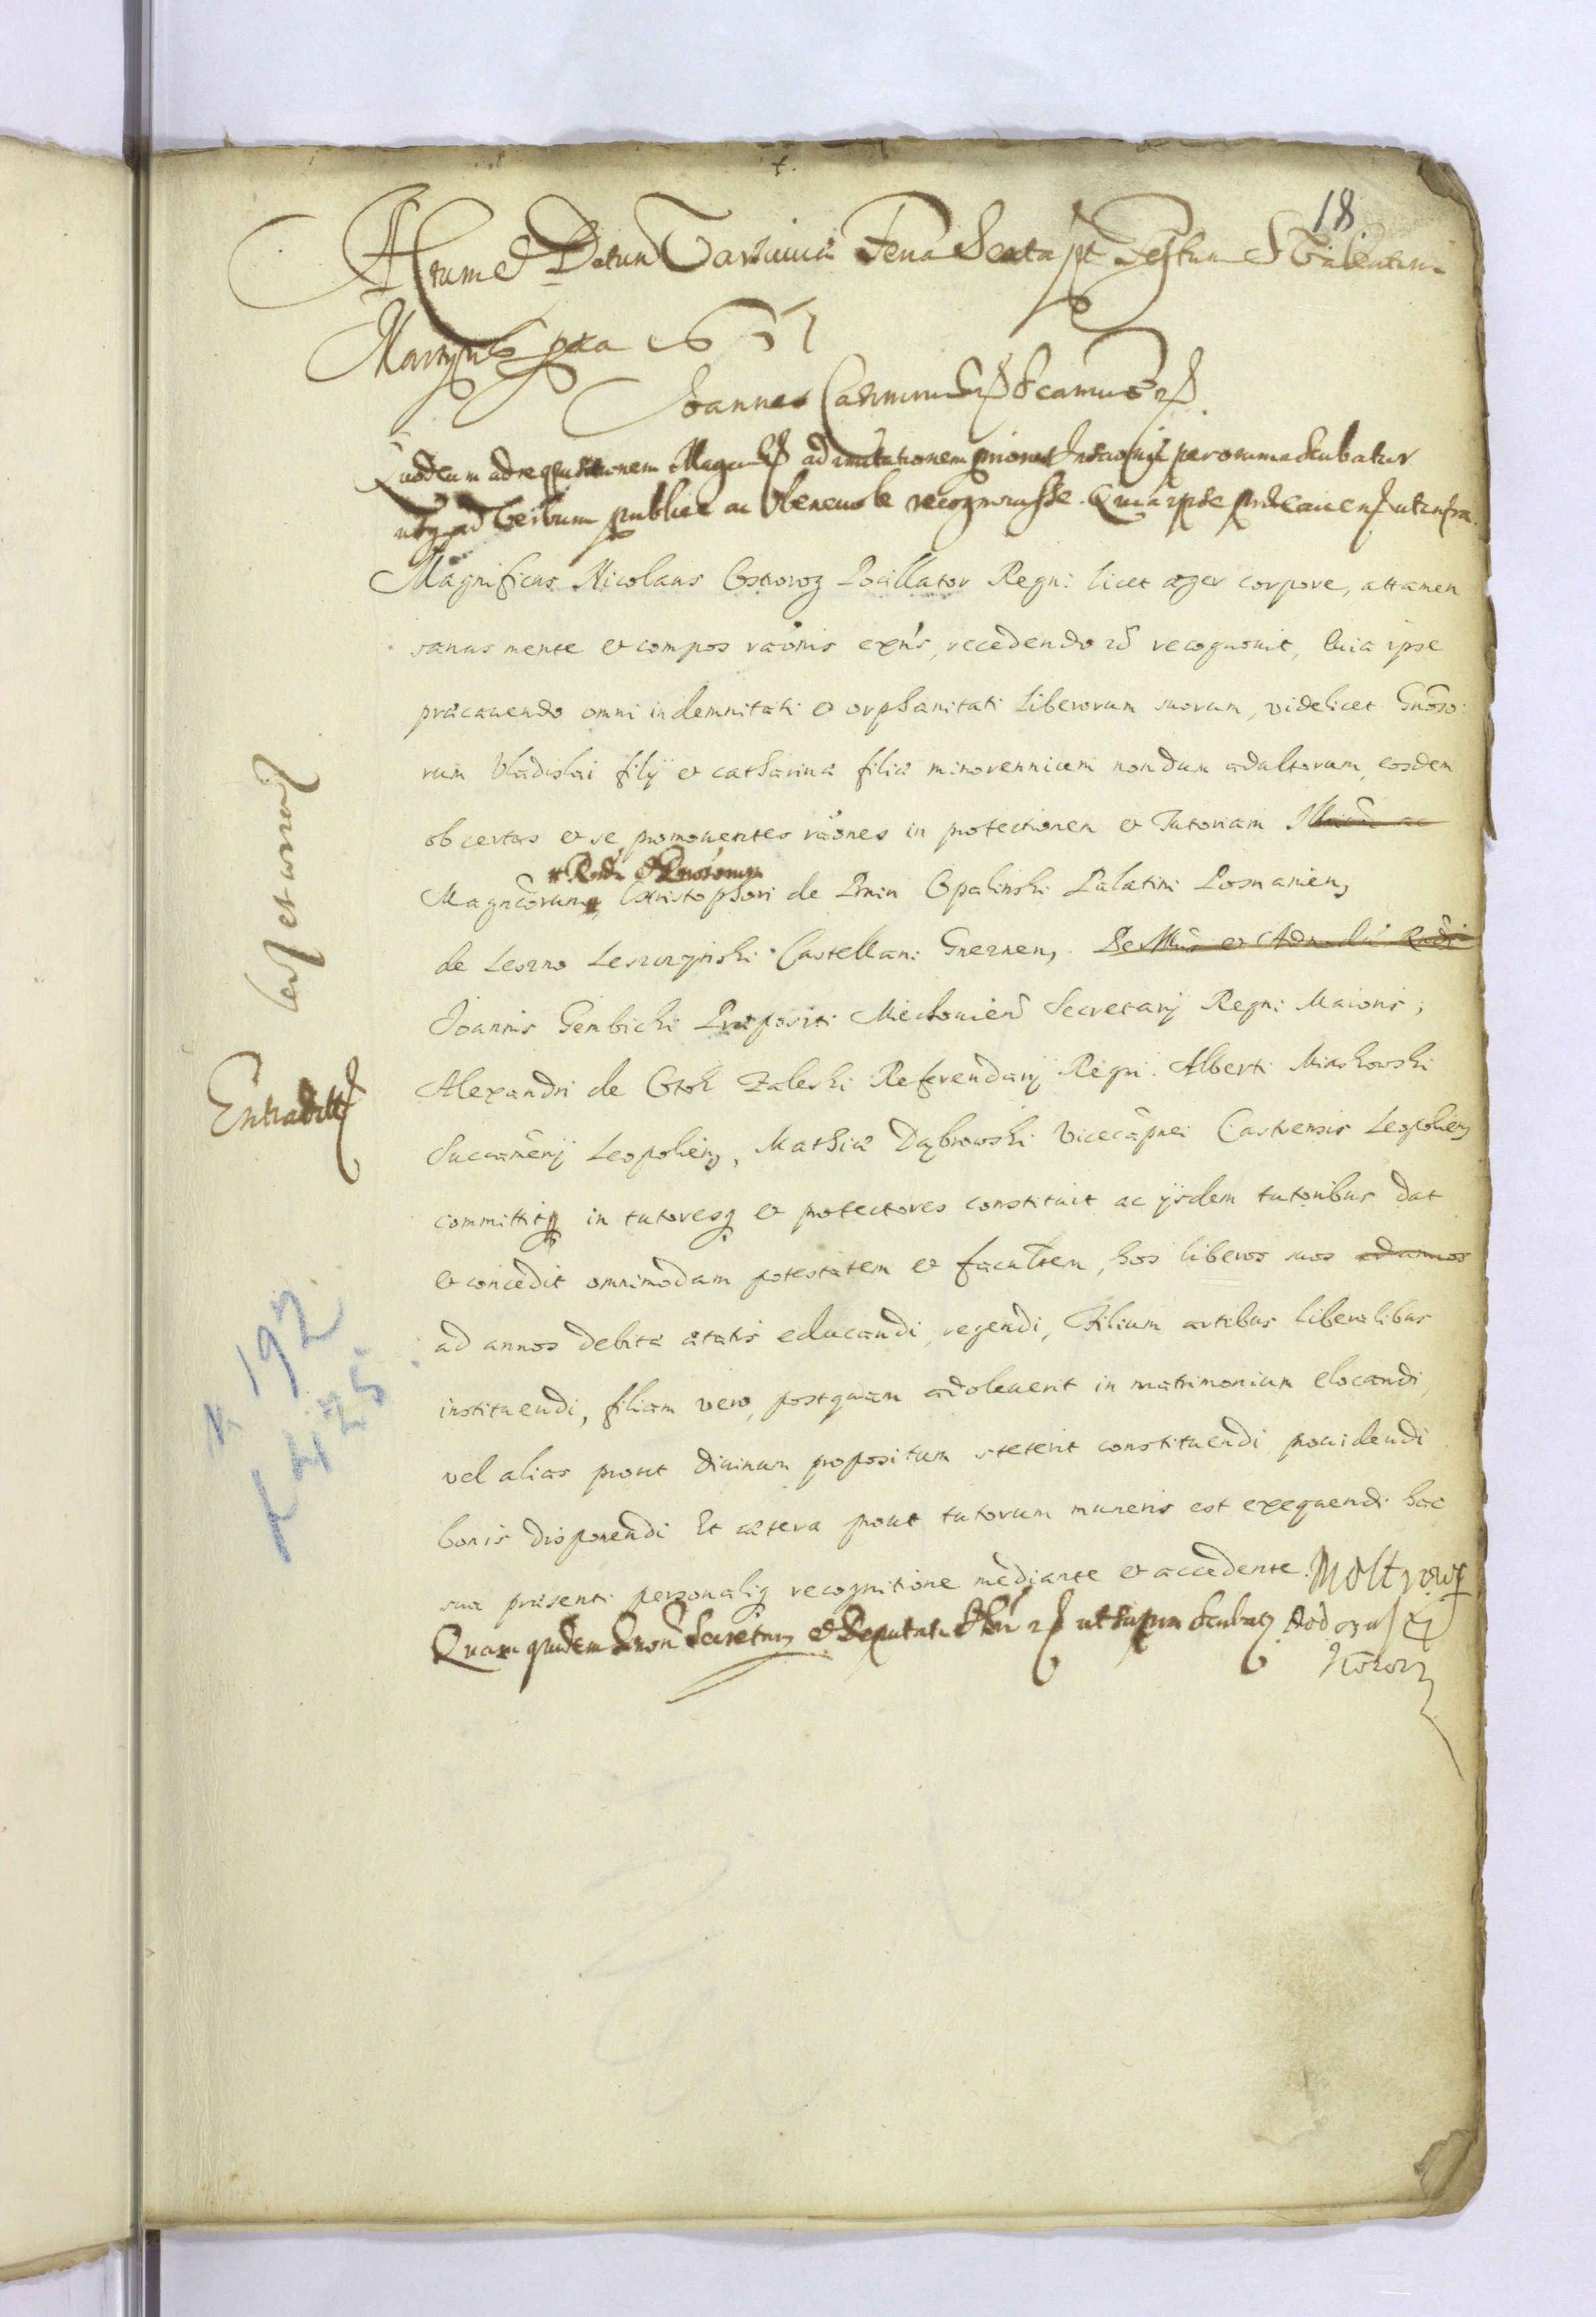 18
Actum et Datum Varsauiae Feria Sexta pt Festum S Valentini
Martyris pxa 1651
Joannes Casimirus Scamus
Quod cum ad requisitionem Magci ad imitationem prioris per omnia scribatur
usq ad verbum publice ac benevole recognouisse. Quia ipse ut infra.
Magnificus Nicolaus Ostrorog Pocillator Regni licet aeger corpore, attamen
sanus mente et compos raonis exns, recedendo recognouit, Quia ipse
praecauendo omni indemnitati et orphanitati liberorum suorum, videlicet Gnoso:
rum Vladislai filij et catharinae filiae minorennium nondum adultorum, eosdem
ob certas et se promouentes raones in protectionem et Tutoriam
Rndi
Magncorumq Christophori de Bnin Opalinski Palatini Posnanien,
de Leszno Leszczynski Castellani Gnesnen,
Joannis Gembicki Praepositi Miechouien Secretarij Regni Maioris;
Alexandri de Otok Zaleski Referendarij Regni. Alberti Miaskowski
Succamerij Leopolien, Mathiae Dąbrowski Vicecapnei Castrensis Leopolien
committitq in tutoresq et protectores constituit ac ijsdem tutoribus dat
et concedit omnimodam potestatem et facultem, hos liberos suos ad annos
ad annos debitae aetatis educandi, regendi, Filium artibus liberalibus
instituendi, filiam vero, postquam adoleuerit in matrimonium elocandi,
vel alias prout diuinum propositum steterit constituendi prouidendi
bonis disponendi Et caetera prout tutorum muneris est exequendi hac
sua praesenti personaliq recognitione mediante et accedente.
Quam quidem ut supra scribatz
Entradatt
N 192
K 425